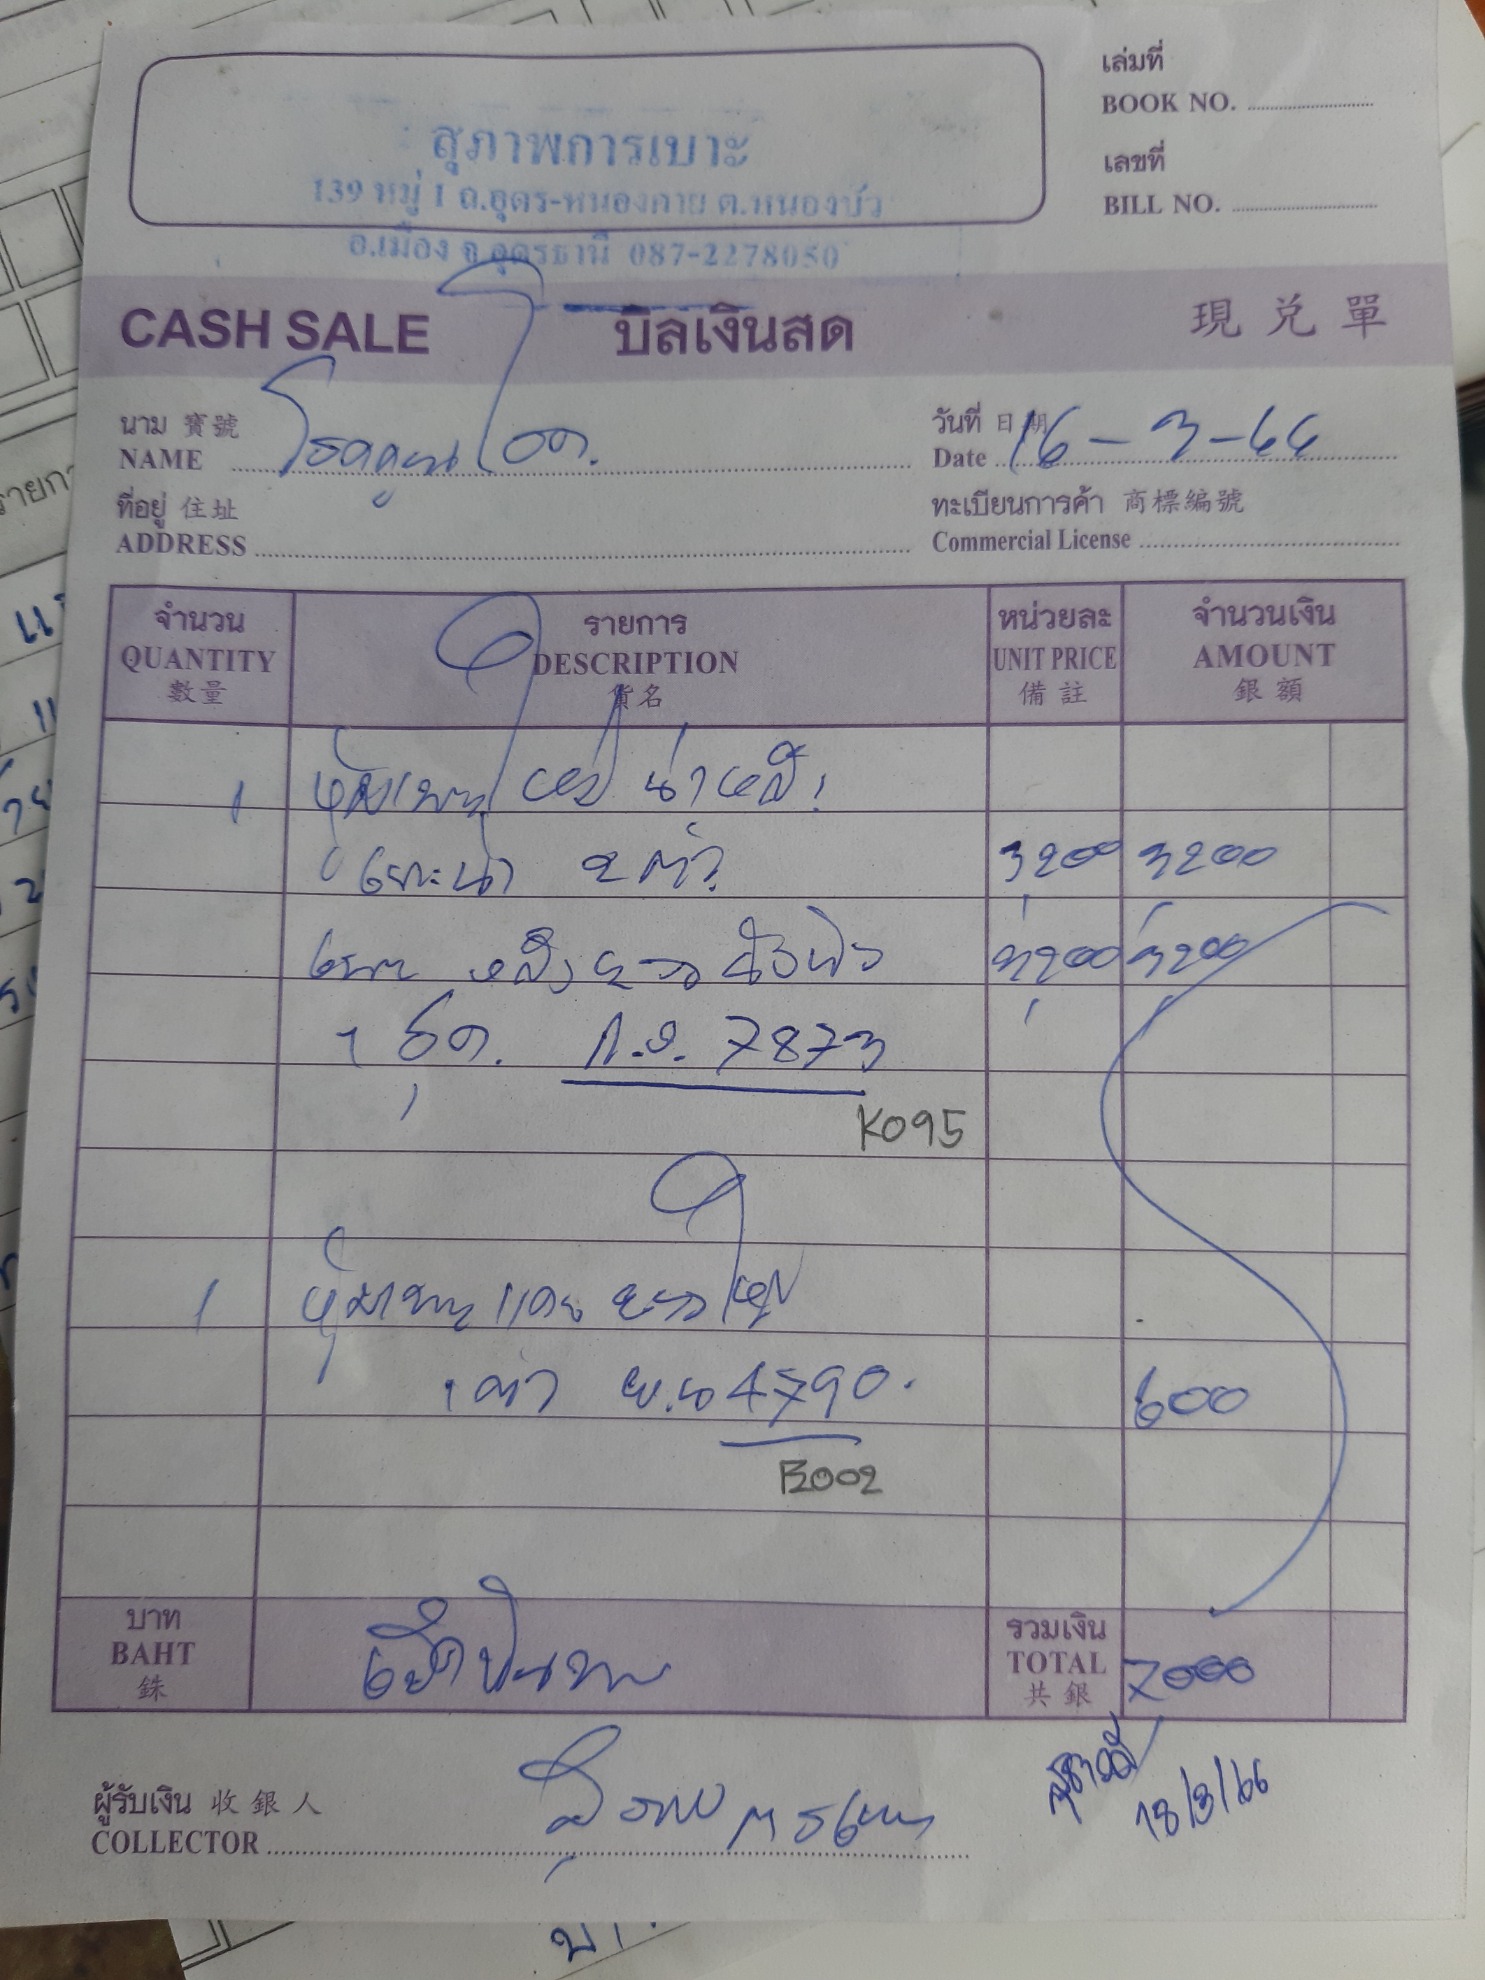 เล่มที่
BOOK NO.
เลขที่
BILL NO.
สุภาพการเบาะ
139 หมู่ 1 ถ.อุดร-หนองคาย ต.หนองบัว
อ.เมือง จ.อุดรธานี 087-2278050
CASH SALE บิลเงินสด 現兌單
นาม 寶號
NAME
วันที่ 日期
Date 16-3-66
ที่อยู่ 住址
ADDRESS
ทะเบียนการค้า 商標編號
Commercial License
จำนวน รายการ หน่วยละ จำนวนเงิน
QUANTITY DESCRIPTION UNIT PRICE AMOUNT
數量 貨名 備註 銀額
1 หุ้มเบาะ
2 ตัว 3200 3200
เบาะ หลัง 3200 3200
1 ชุด. ก.ย. 7873
K095
1 หุ้มเบาะ
1 ตัว 4790. 600
B002
บาท
BAHT
銖
เจ็ดพันบาท
รวมเงิน
TOTAL 7000
共銀
ผู้รับเงิน 收銀人
COLLECTOR
18/3/66